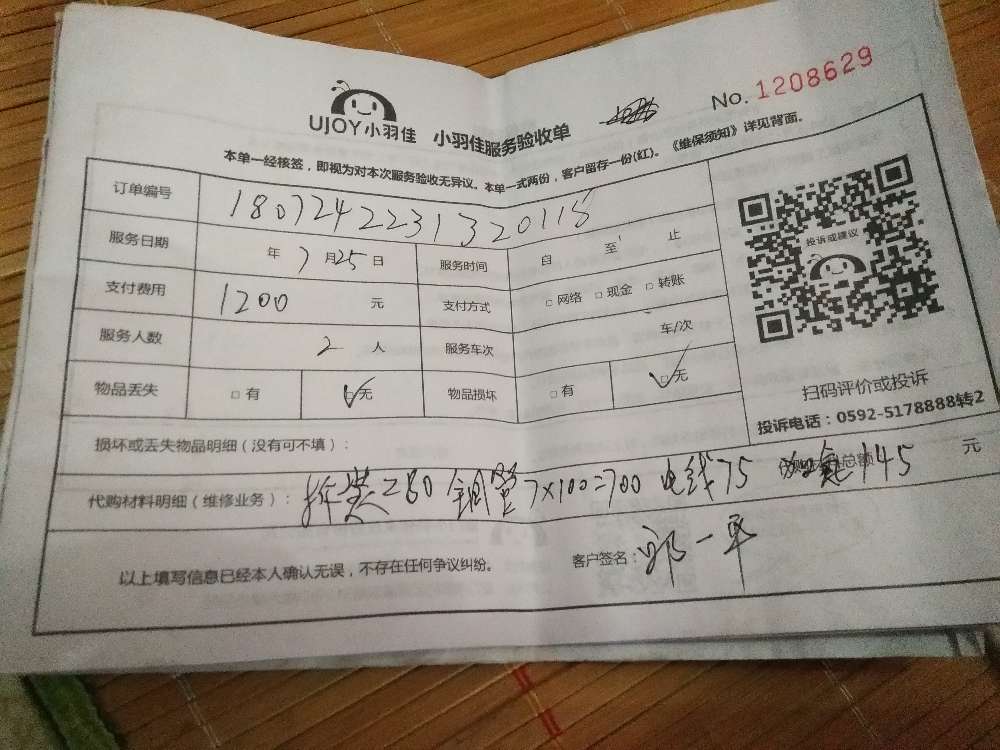 No. 1208629
UJOY小羽佳 小羽佳服务验收单
本单一经核签，即视为对本次服务验收无异议。本单一式两份，客户留存一份(红)。《维保须知》详见背面。
订单编号 1807242231320115
服务日期 年 7 月 25 日 服务时间 自 至 止
支付费用 1200 元 支付方式 □网络 □现金 □转账
服务人数 2 人 服务车次 车/次
物品丢失 □有 □无 物品损坏 □有 □无
投诉或建议
扫码评价或投诉
投诉电话：0592-5178888转2
损坏或丢失物品明细（没有可不填）：
代购材料明细（维修业务）： 拆装280 铜管7×100=700 电线75 总额 145 元
以上填写信息已经本人确认无误，不存在任何争议纠纷。 客户签名：郭一平